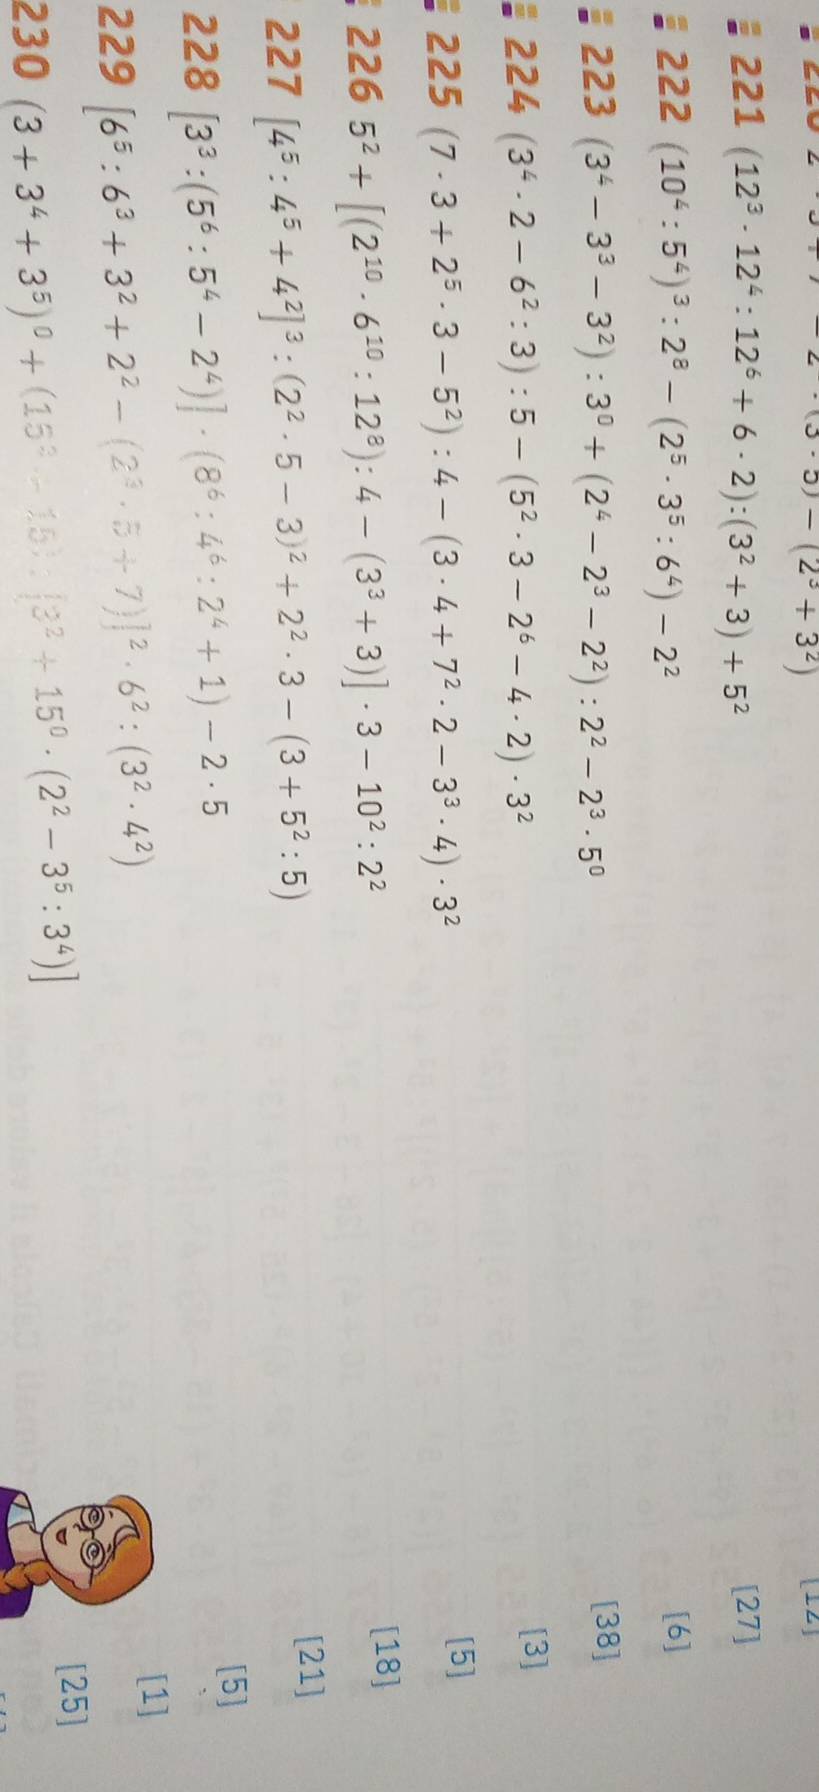 221 (12³ · 12⁴ : 12⁶ + 6 · 2) : (3² + 3) + 5² [27]
222 (10⁴ : 5⁴)³ : 2⁸ − (2⁵ · 3⁵ : 6⁴) − 2² [6]
223 (3⁴ − 3³ − 3²) : 3⁰ + (2⁴ − 2³ − 2²) : 2² − 2³ · 5⁰ [38]
224 (3⁴ · 2 − 6² : 3) : 5 − (5² · 3 − 2⁶ − 4 · 2) · 3² [3]
225 (7 · 3 + 2⁵ · 3 − 5²) : 4 − (3 · 4 + 7² · 2 − 3³ · 4) · 3² [5]
226 5² + [(2¹⁰ · 6¹⁰ : 12⁸) : 4 − (3³ + 3)] · 3 − 10² : 2² [18]
227 [4⁵ : 4⁵ + 4²]³ : (2² · 5 − 3)² + 2² · 3 − (3 + 5² : 5) [21]
228 [3³ : (5⁶ : 5⁴ − 2⁴)] · (8⁶ : 4⁶ : 2⁴ + 1) − 2 · 5 [5]
229 [6⁵ : 6³ + 3² + 2² − (2³ · 5 + 7)]² · 6² : (3² · 4²) [1]
230 (3 + 3⁴ + 3⁵)⁰ + : [3² + 15⁰ · (2² − 3⁵ : 3⁴)] [25]